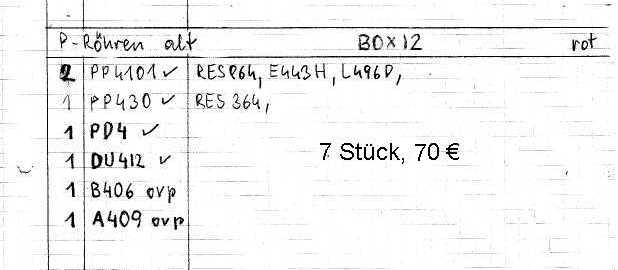 P-Röhren alt BOX 12 rot
2 PP4101 ✓ RES964, E443H, L496D,
1 PP430 ✓ RES 364,
1 PD4 ✓
1 DU412 ✓
7 Stück, 70 €
1 B406 ovp
1 A409 ovp